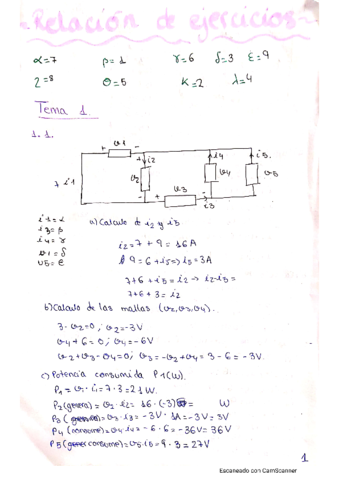 Relación de ejercicios
α=7 ρ=1 γ=6 δ=3 ε=9
2=8 θ=5 K=2 λ=4
Tema 1
1.1.
+ v1 -
i2
v2
i4
v4
i5
v5
7 i1
+ v3 -
i3
i1=α
i3=β
i4=γ
v1=δ
v5=ε
a) Calculo de i2 y i5
i2=7+9=16A
9=6+i5=>i5=3A
7+6+i5=i2 -> i2-i5=
7+6+3=i2
b) Calculo de las mallas (v2,v3,v4).
3-v2=0; v2=-3V
v4+6=0; v4=-6V
v2+v3-v4=0; v3=-v2+v4=3-6=-3V.
c) Potencia consumida P1(W).
P1=v1·i1=7·3=21W.
P2(genera)=v2·i2=16·(-3)= W
P3(genera)=v3·i3=-3V·1A=-3V=3V
P4(consume)=v4·i4=-6·6=-36V=36V
P5(consume)=v5·i5=9·3=27V
1
Escaneado con CamScanner